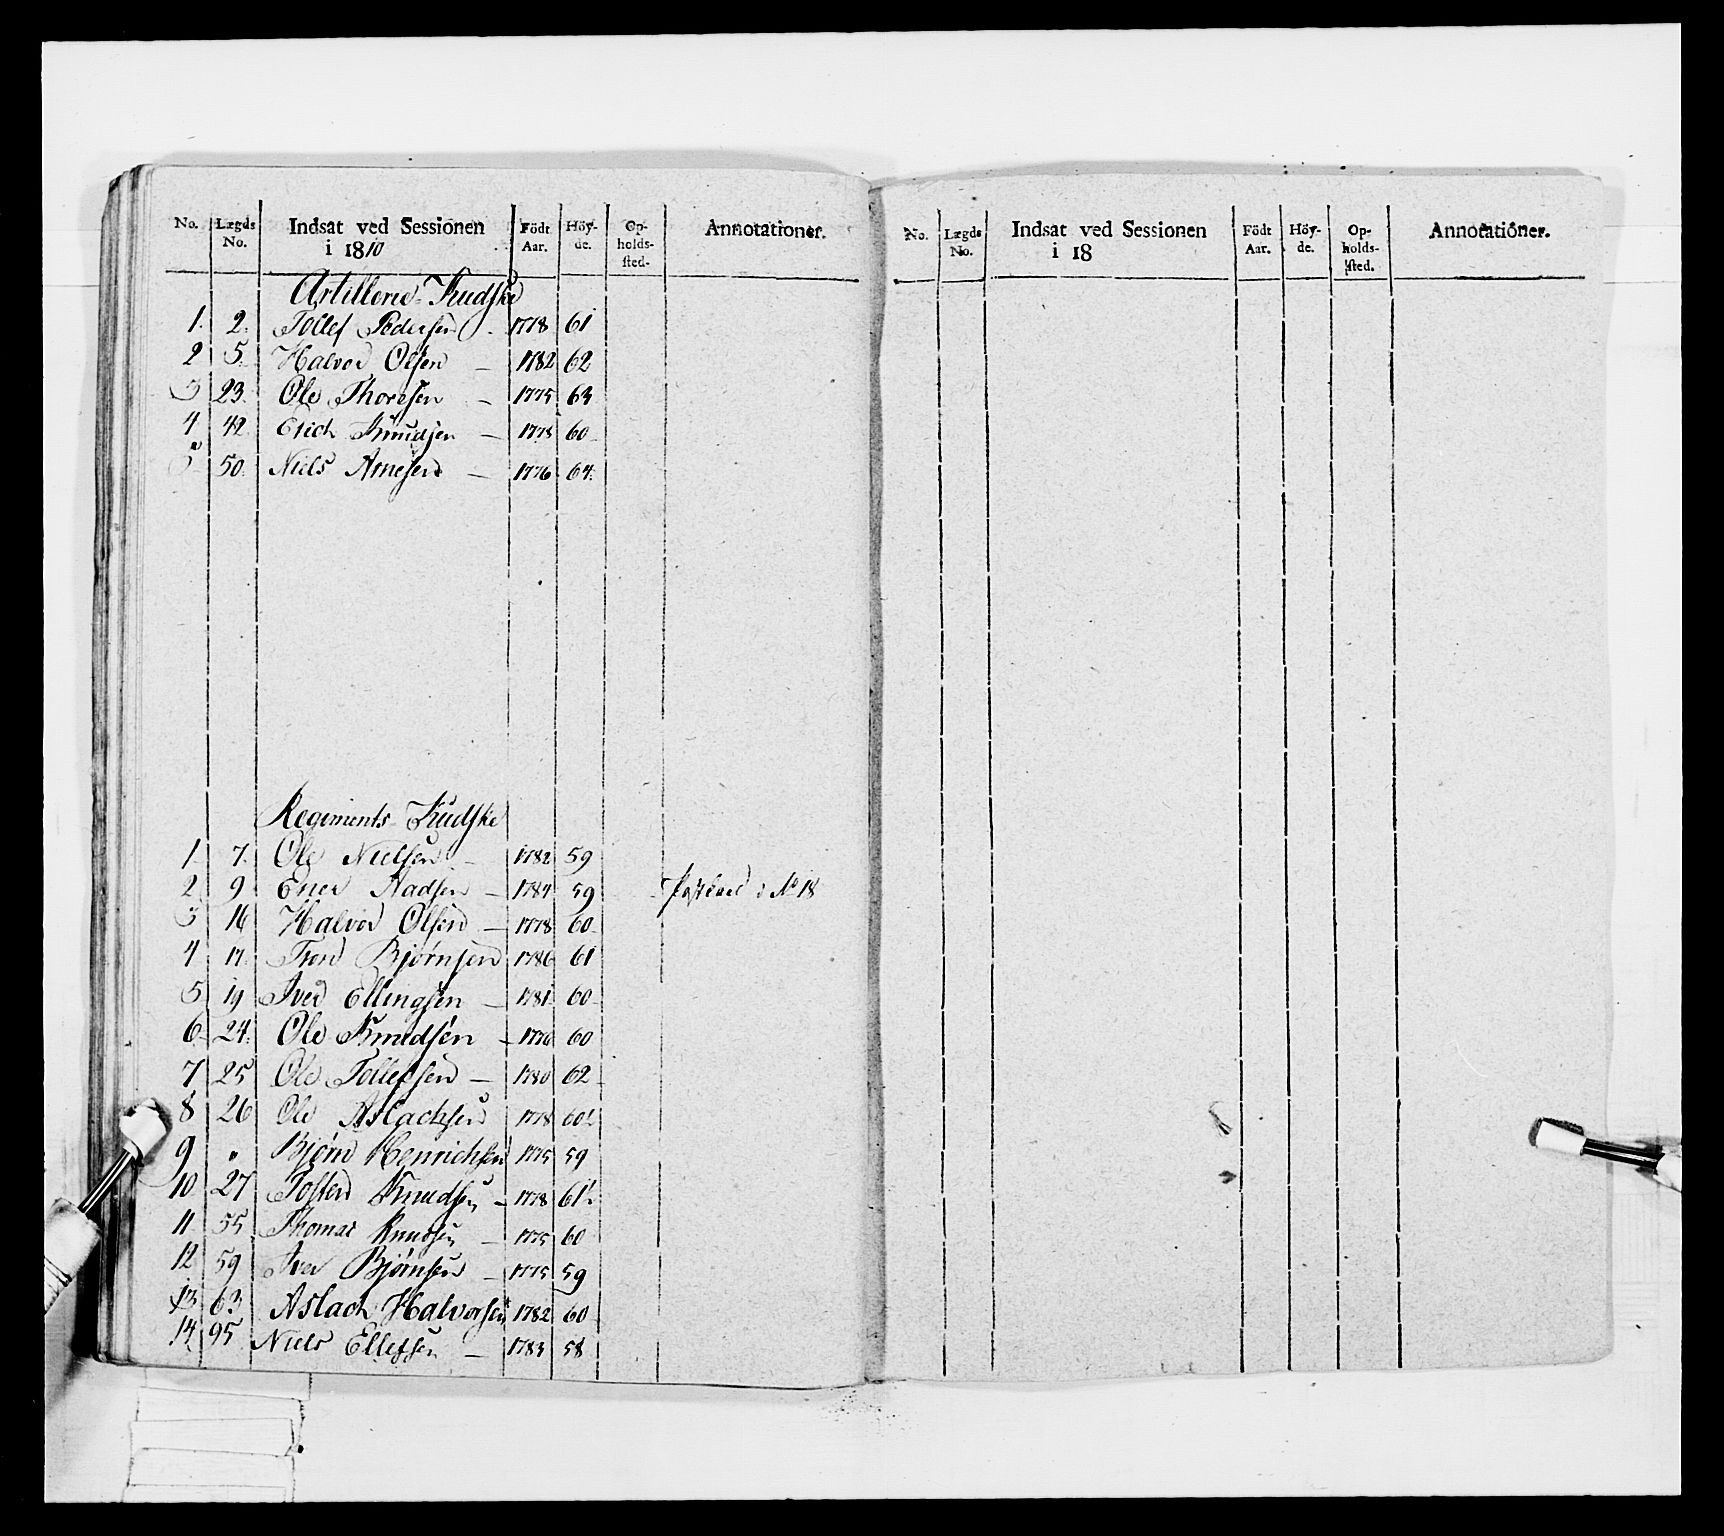 No. Lægds No. Indsat ved Sessionen i 1810 Födt Aar. Höyde. Opholdssted. Annotationer.
Artillerie-Kudske
1. 2. Tollef Pedersen - 1778 61
2 5. Halvor Olsen - 1782 62
3 23. Ole Thoresen - 1775 63
4 42 Erich Knudsen - 1778 60
5 50. Niels Arnesen - 1776 64.
Regiments-Kudske
1. 7. Ole Nielsen - 1782 59
2 9 Ener Aadsen - 1784 59 i No 18
3 16 Halvor Olsen - 1778 60
4 17. Tron Bjørnsen 1786 61
5 19 Iver Ellingsen - 1781 60
6 24. Ole Knudsen - 1776 60
7 25 Ole Tollefsen - 1780 62
8 26 Ole Aslachsen 1778 60½
9 " Bjørn Henrichsen 1775 59
10 27 Tosten Knudsen - 1778 61½
11 55 Thomas Knudsen - 1775 60
12 59 Iver Bjørnsen - 1775 59
13 63 Aslach Halvorsen 1782 60
14 95 Niels Ellefsen - 1783 58
No. Lægds No. Indsat ved Sessionen i 18 Födt Aar. Höyde. Opholdssted. Annotationer.